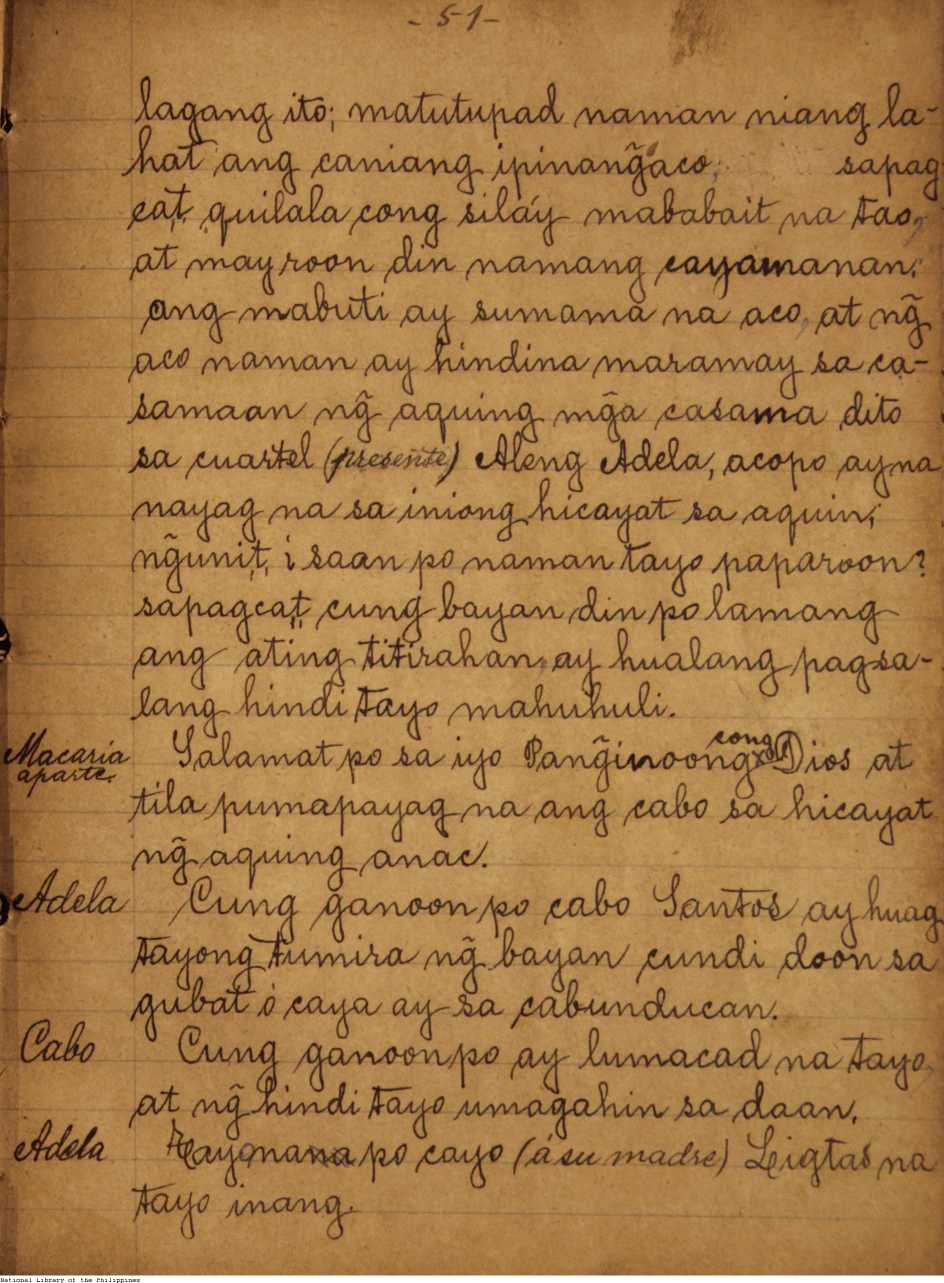 - 51 -
lagang ito; matutupad naman niang la-
hat ang caniang ipinang̃aco; sapag
cat, quilala cong sila'y mababait na tao,
at mayroon din namang cayamanan;
ang mabuti ay sumama na aco, at ng̃
aco naman ay hindina maramay sa ca-
samaan ng̃ aquing mg̃a casama dito
sa cuartel (presente) Aleng Adela, acopo ay na
nayag na sa iniong hicayat sa aquin;
ng̃unit, i saan po naman tayo paparoon?
sapagcat, cung bayan din po lamang
ang ating titirahan, ay hualang pagsa-
lang hindi tayo mahuhuli.
Macaria aparte. Salamat po sa iyo Pang̃inoong cong Dios at
tila pumapayag na ang cabo sa hicayat
ng̃ aquing anac.
Adela Cung ganoon po cabo Santos ay huag
tayong tumira ng̃ bayan cundi doon sa
gubat ó caya ay sa cabunducan.
Cabo Cung ganoon po ay lumacad na tayo
at ng̃ hindi tayo umagahin sa daan.
Adela po cayo (á su madre) Ligtas na
tayo inang.
National Library of the Philippines